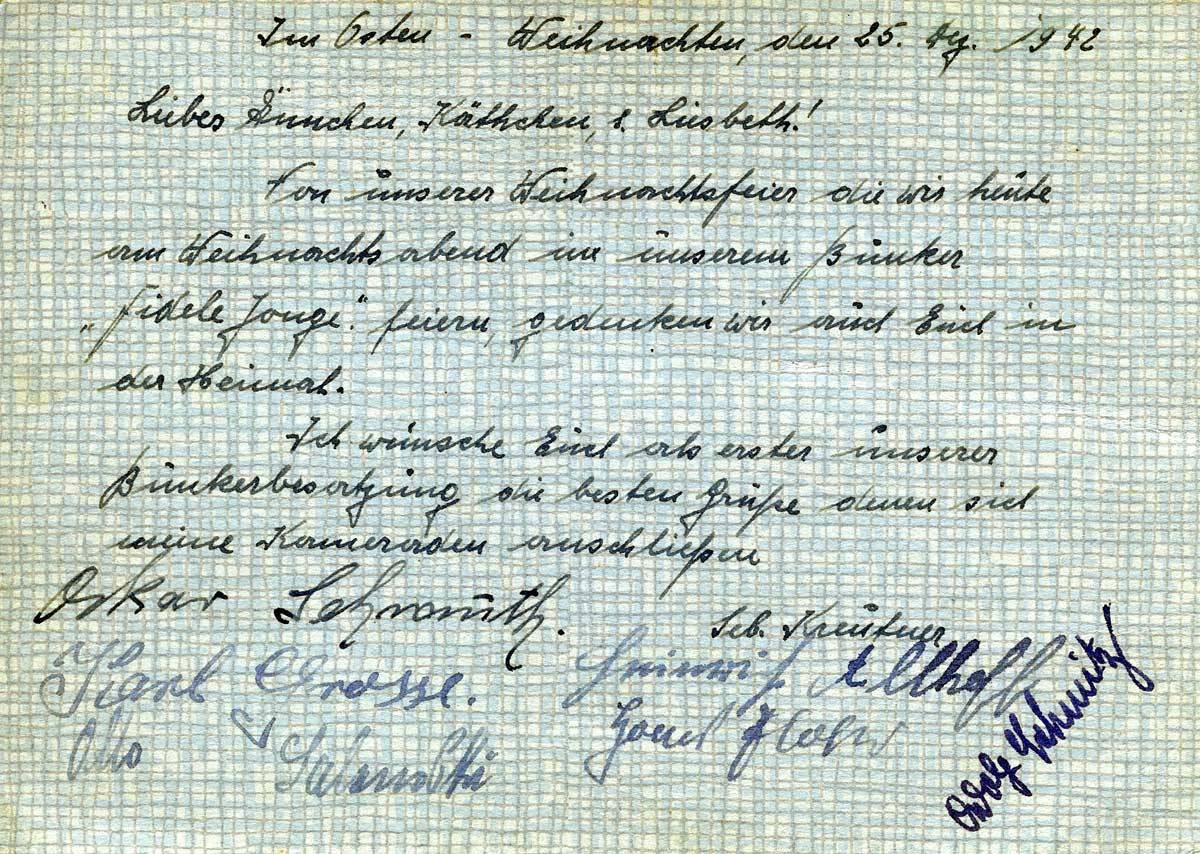 Im Osten - Weihnachten, den 25. Dez. 1942
Liebes Ännchen, Käthchen, u. Liesbeth!
Von unserer Weihnachtsfeier die wir heute
am Weihnachtsabend in unserem Bunker
„Fidele Jonge“ feiern, gedenken wir auch Euch in
der Heimat.
Ich wünsche Euch als erster unserer
Bunkerbesatzung die besten Grüße denen sich
meine Kameraden anschließen
Oskar
Seb. Kreutner
Karl Grosse. Heinrich Allhoff
Otto
Josef
Adolf Schmitz